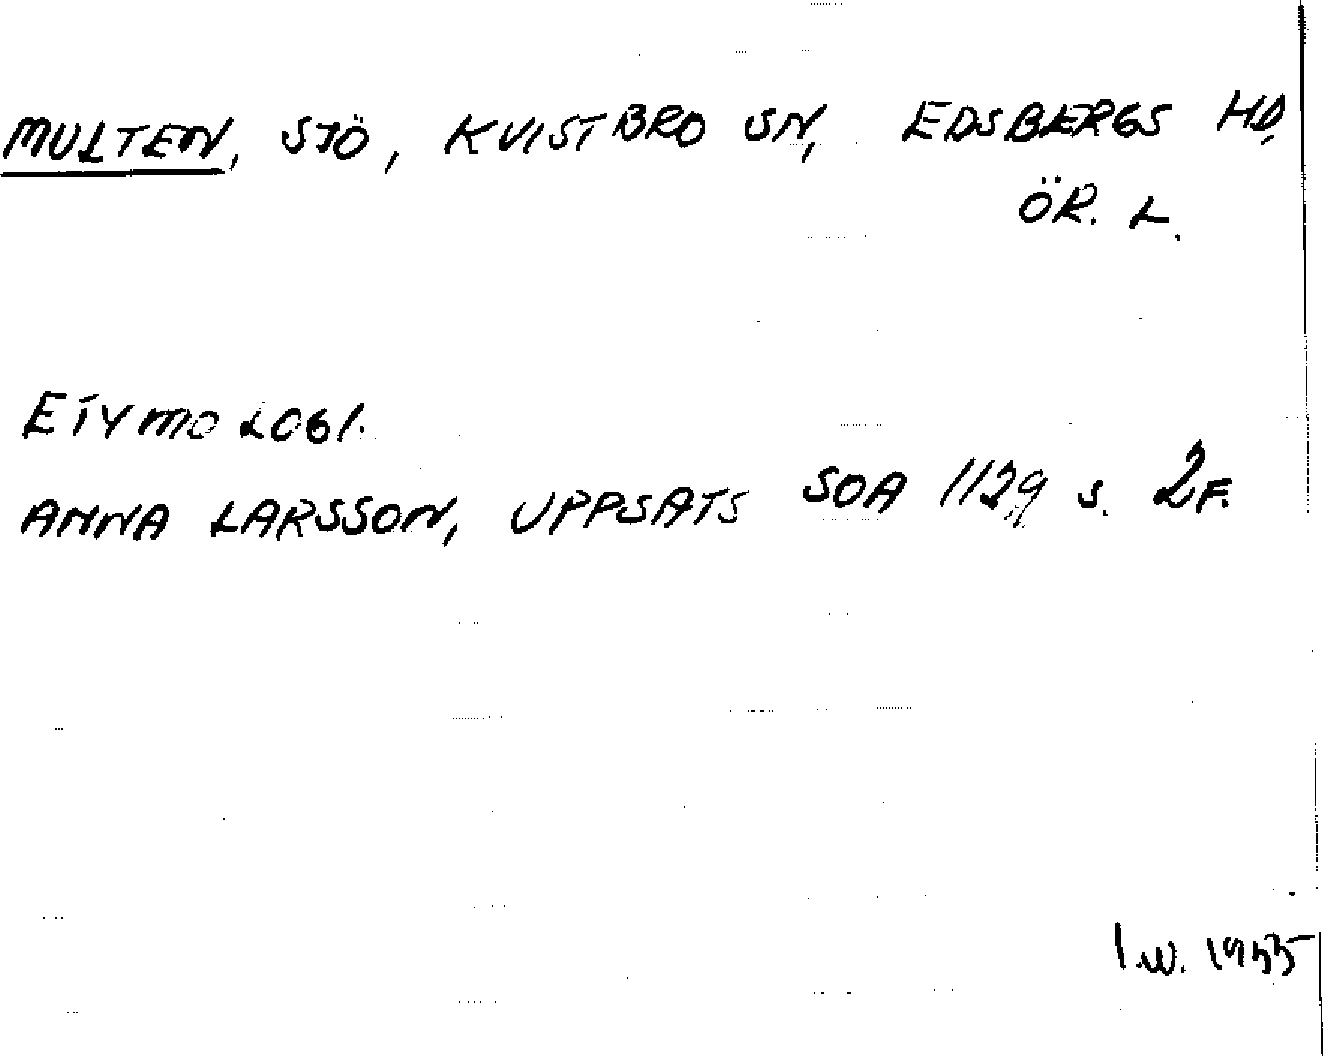 MULTEN, SJÖ, KVISTBRO SN, EDSBERGS HD,
ÖR. L.
ETYMOLOGI.
ANNA LARSSON, UPPSATS SOA 1129 S. 2F.
I.W. 1955